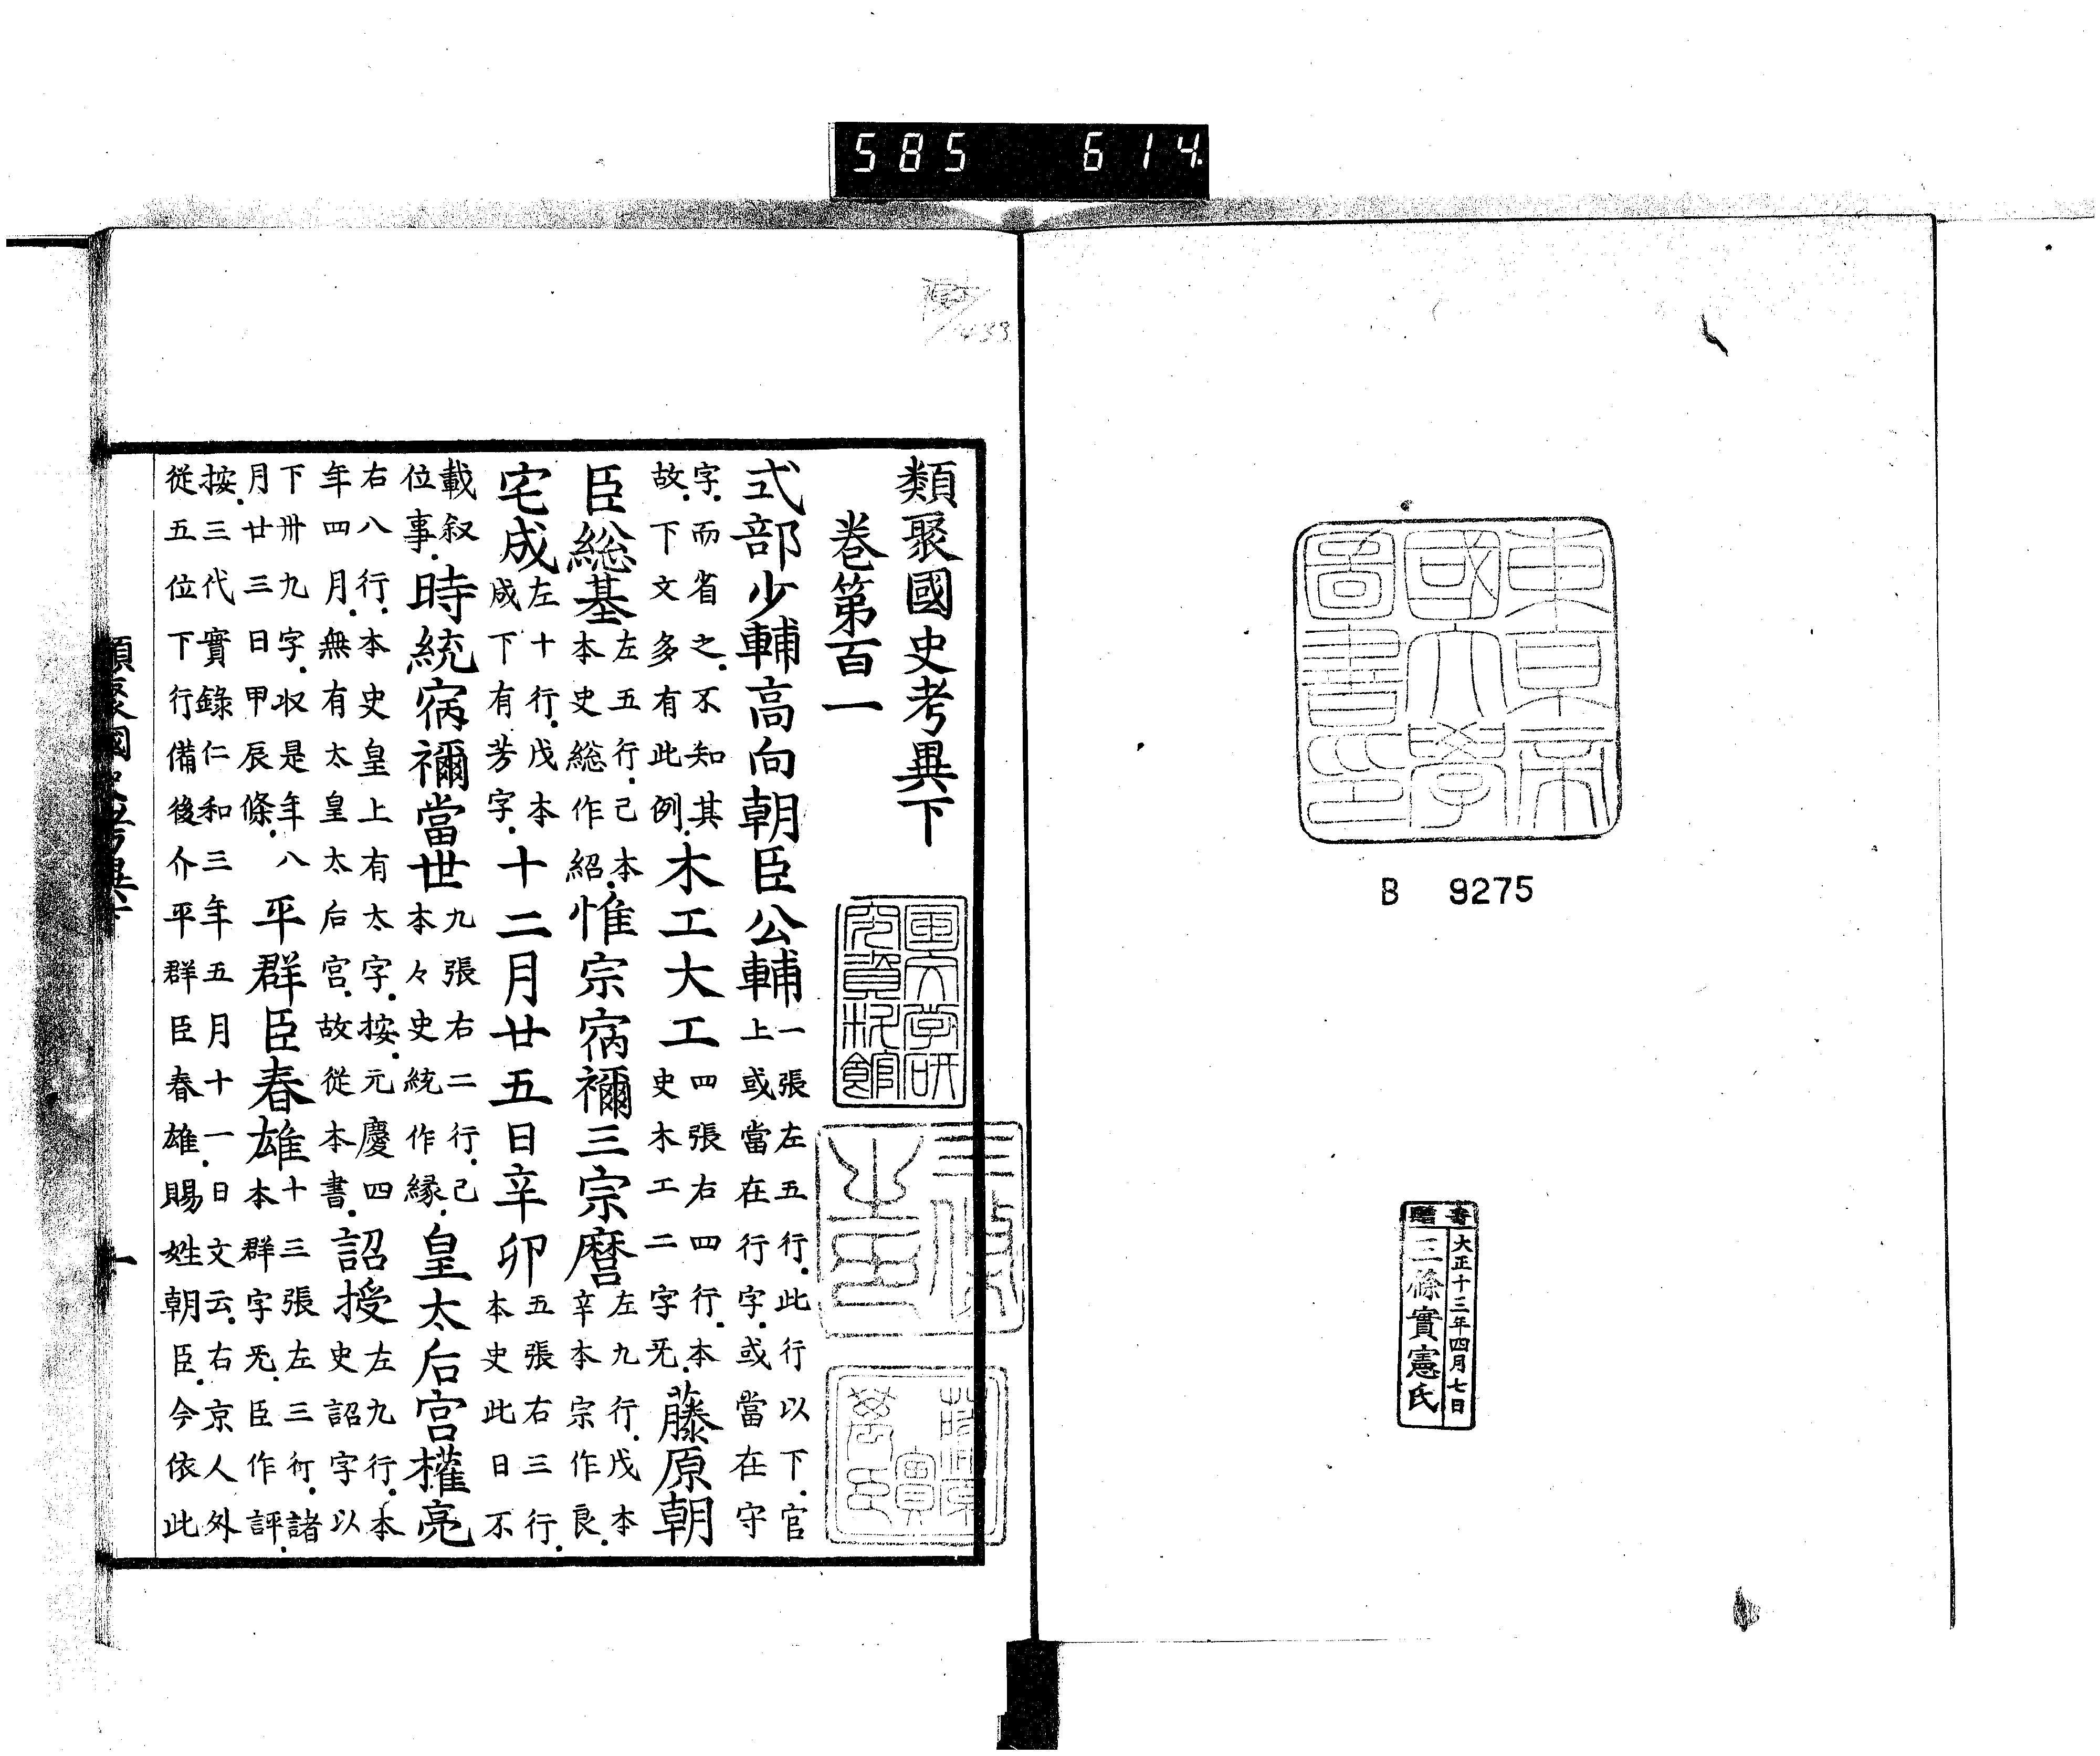 585 614
東京帝
國大學
圖書印
B 9275
寄贈
大正十三年四月七日
三條實憲氏
類聚國史考異下
國文学研
究資料館
卷第百一
式部少輔高向朝臣公輔
一張左五行此行以下官
上或當在行字或當在守
字而省之不知其
故下文多有此例
木工大工
四張右四行本
史木工二字旡
藤原朝
臣総基
左五行己本
本史総作紹
惟宗宿禰三宗麿
左九行戊本
辛本宗作良
宅成
左十行戊本
成下有芳字
十二月廿五日辛卯
五張右三行
本史此日不
載叙
位事
時統宿禰當世
九張右二行己
本々史統作縁
皇太后宮權亮
右八行本史皇上有太字按元慶四
年四月無有太皇太后宮故從本書
詔授
左九行本
史詔字以
下卅九字収是年八
月廿三日甲辰條
平群臣春雄
十三張左三行諸
本群字旡臣作評
按三代實錄仁和三年五月十一日文云右京人外
從五位下行備後介平群臣春雄賜姓朝臣今依此
類聚國史考異下
一